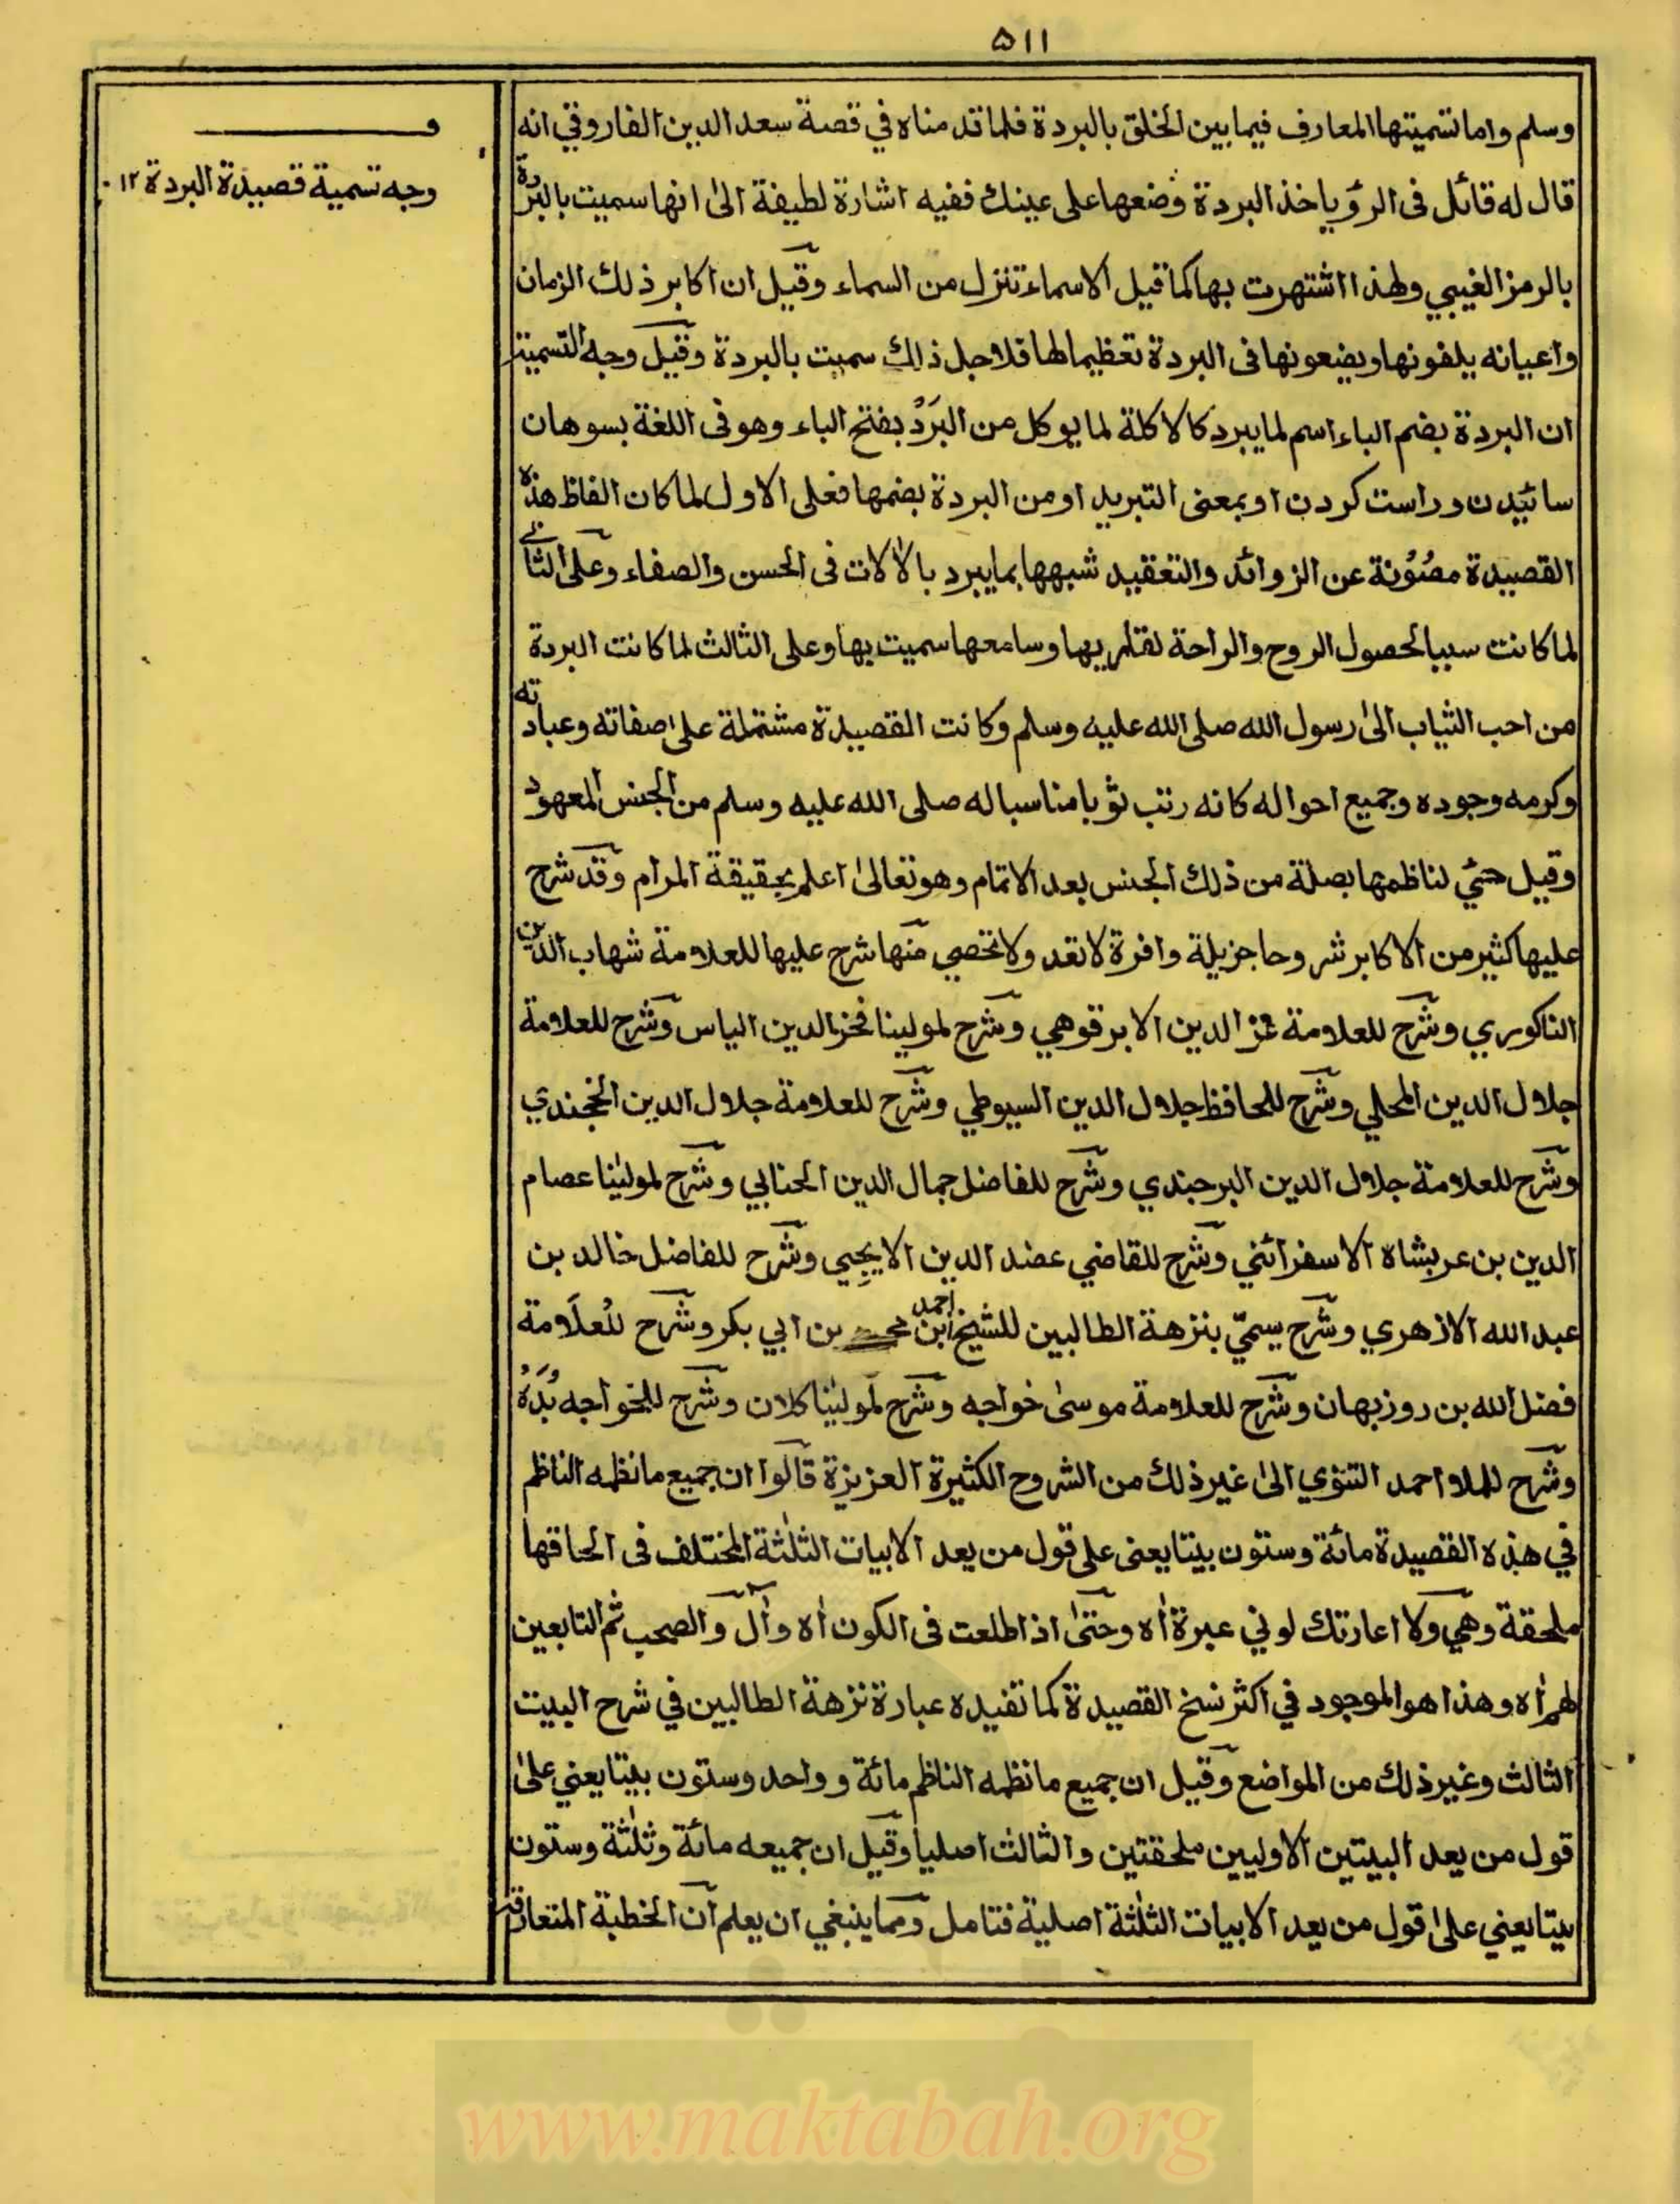 ٥١١
وسلم واما تسميتها المعارف فيما بين الخلق بالبردة فلما قدمناه في قصة سعد الدين الفاروقي انه
قال له قائل فى الرؤيا خذ البردة وضعها على عينك ففيه اشارة لطيفة الى انها سميت بالبردة
بالرمز الغيبي ولهذا اشتهرت بها كما قيل الاسماء تنزل من السماء وقيل ان اكابر ذلك الزمان
واعيانه يلفونها ويضعونها فى البردة تعظيما لها فلاجل ذالك سميت بالبردة وقيل وجه التسمية
ان البردة بضم الباء اسم لما يبرد كالاكلة لما يوكل من البَرْدُ بفتح الباء وهو فى اللغة بسوهان
سائيدن وراست كردن او بمعنى التبريد او من البردة بضمها فعلى الاول لما كان الفاظ هذه
القصيدة مصئونة عن الزوائد والتعقيد شبهها بما يبرد بالالات فى الحسن والصفاء وعلى الثانے
لما كانت سببا لحصول الروح والراحة لقاريها وسامعها سميت بها وعلى الثالث لما كانت البردة
من احب الثياب الى رسول الله صلى الله عليه وسلم وكانت القصيدة مشتملة على صفاته وعباداته
وكرمه وجوده وجميع احواله كانه رتب ثوبا مناسبا له صلى الله عليه وسلم من الجنس المعهود
وقيل حبّي لناظمها بصلة من ذلك الجنس بعد الاتمام وهو تعالى اعلم بحقيقة المرام وقد شرح
عليها كثير من الاكابر شروحا جزيلة وافرة لا تعد ولا تحصي منها شرح عليها للعلامة شهاب الدين
الناكوري وشرح للعلامة عز الدين الابرقوهي وشرح لمولينا فخر الدين الياس وشرح للعلامة
جلال الدين المحلي وشرح للحافظ جلال الدين السيوطي وشرح للعلامة جلال الدين الخجندي
وشرح للعلامة جلال الدين البرجندي وشرح للفاضل جمال الدين الحنابي وشرح لمولٰينا عصام
الدين بن عربشاه الاسفرائني وشرح للقاضي عضد الدين الايجيي وشرح للفاضل خالد بن
عبد الله الازهري وشرح يسميّ بنزهة الطالبين للشيخ احمد ابن بن ابي بكر وشرح للعلامة
فضل الله بن روزبهان وشرح للعلامة موسىٰ خواجه وشرح لمولٰينا كلان وشرح للخواجه بُدَهْ
وشرح للملا احمد التتوي الى غير ذلك من الشروح الكثيرة العزيزة قالوا ان جميع ما نظمه الناظم
في هذه القصيدة مائة وستون بيتا يعنى على قول من يعد الابيات الثلٰثة المختلف فى الحاقها
ملحقة وهي ولا اعارتك لوني عبرة اٰه وحتىٰ اذا طلعت فى الكون اٰه وآل والصحب ثم التابعين
لهم اٰه وهذا هو الموجود في اكثر نسخ القصيدة كما تفيده عبارة نزهة الطالبين في شرح البيت
الثالث وغير ذلك من المواضع وقيل ان جميع ما نظمه الناظم مائة وواحد وستون بيتا يعني على
قول من يعد البيتين الاوليين ملحقتين والثالث اصليا وقيل ان جميعه مائة وثلٰثة وستون
بيتا يعني على قول من يعد الابيات الثلٰثة اصلية فتامل ومما ينبغي ان يعلم ان الخطبة المتعارفة
وجه تسمية قصيدة البردة ١٢
www.maktabah.org